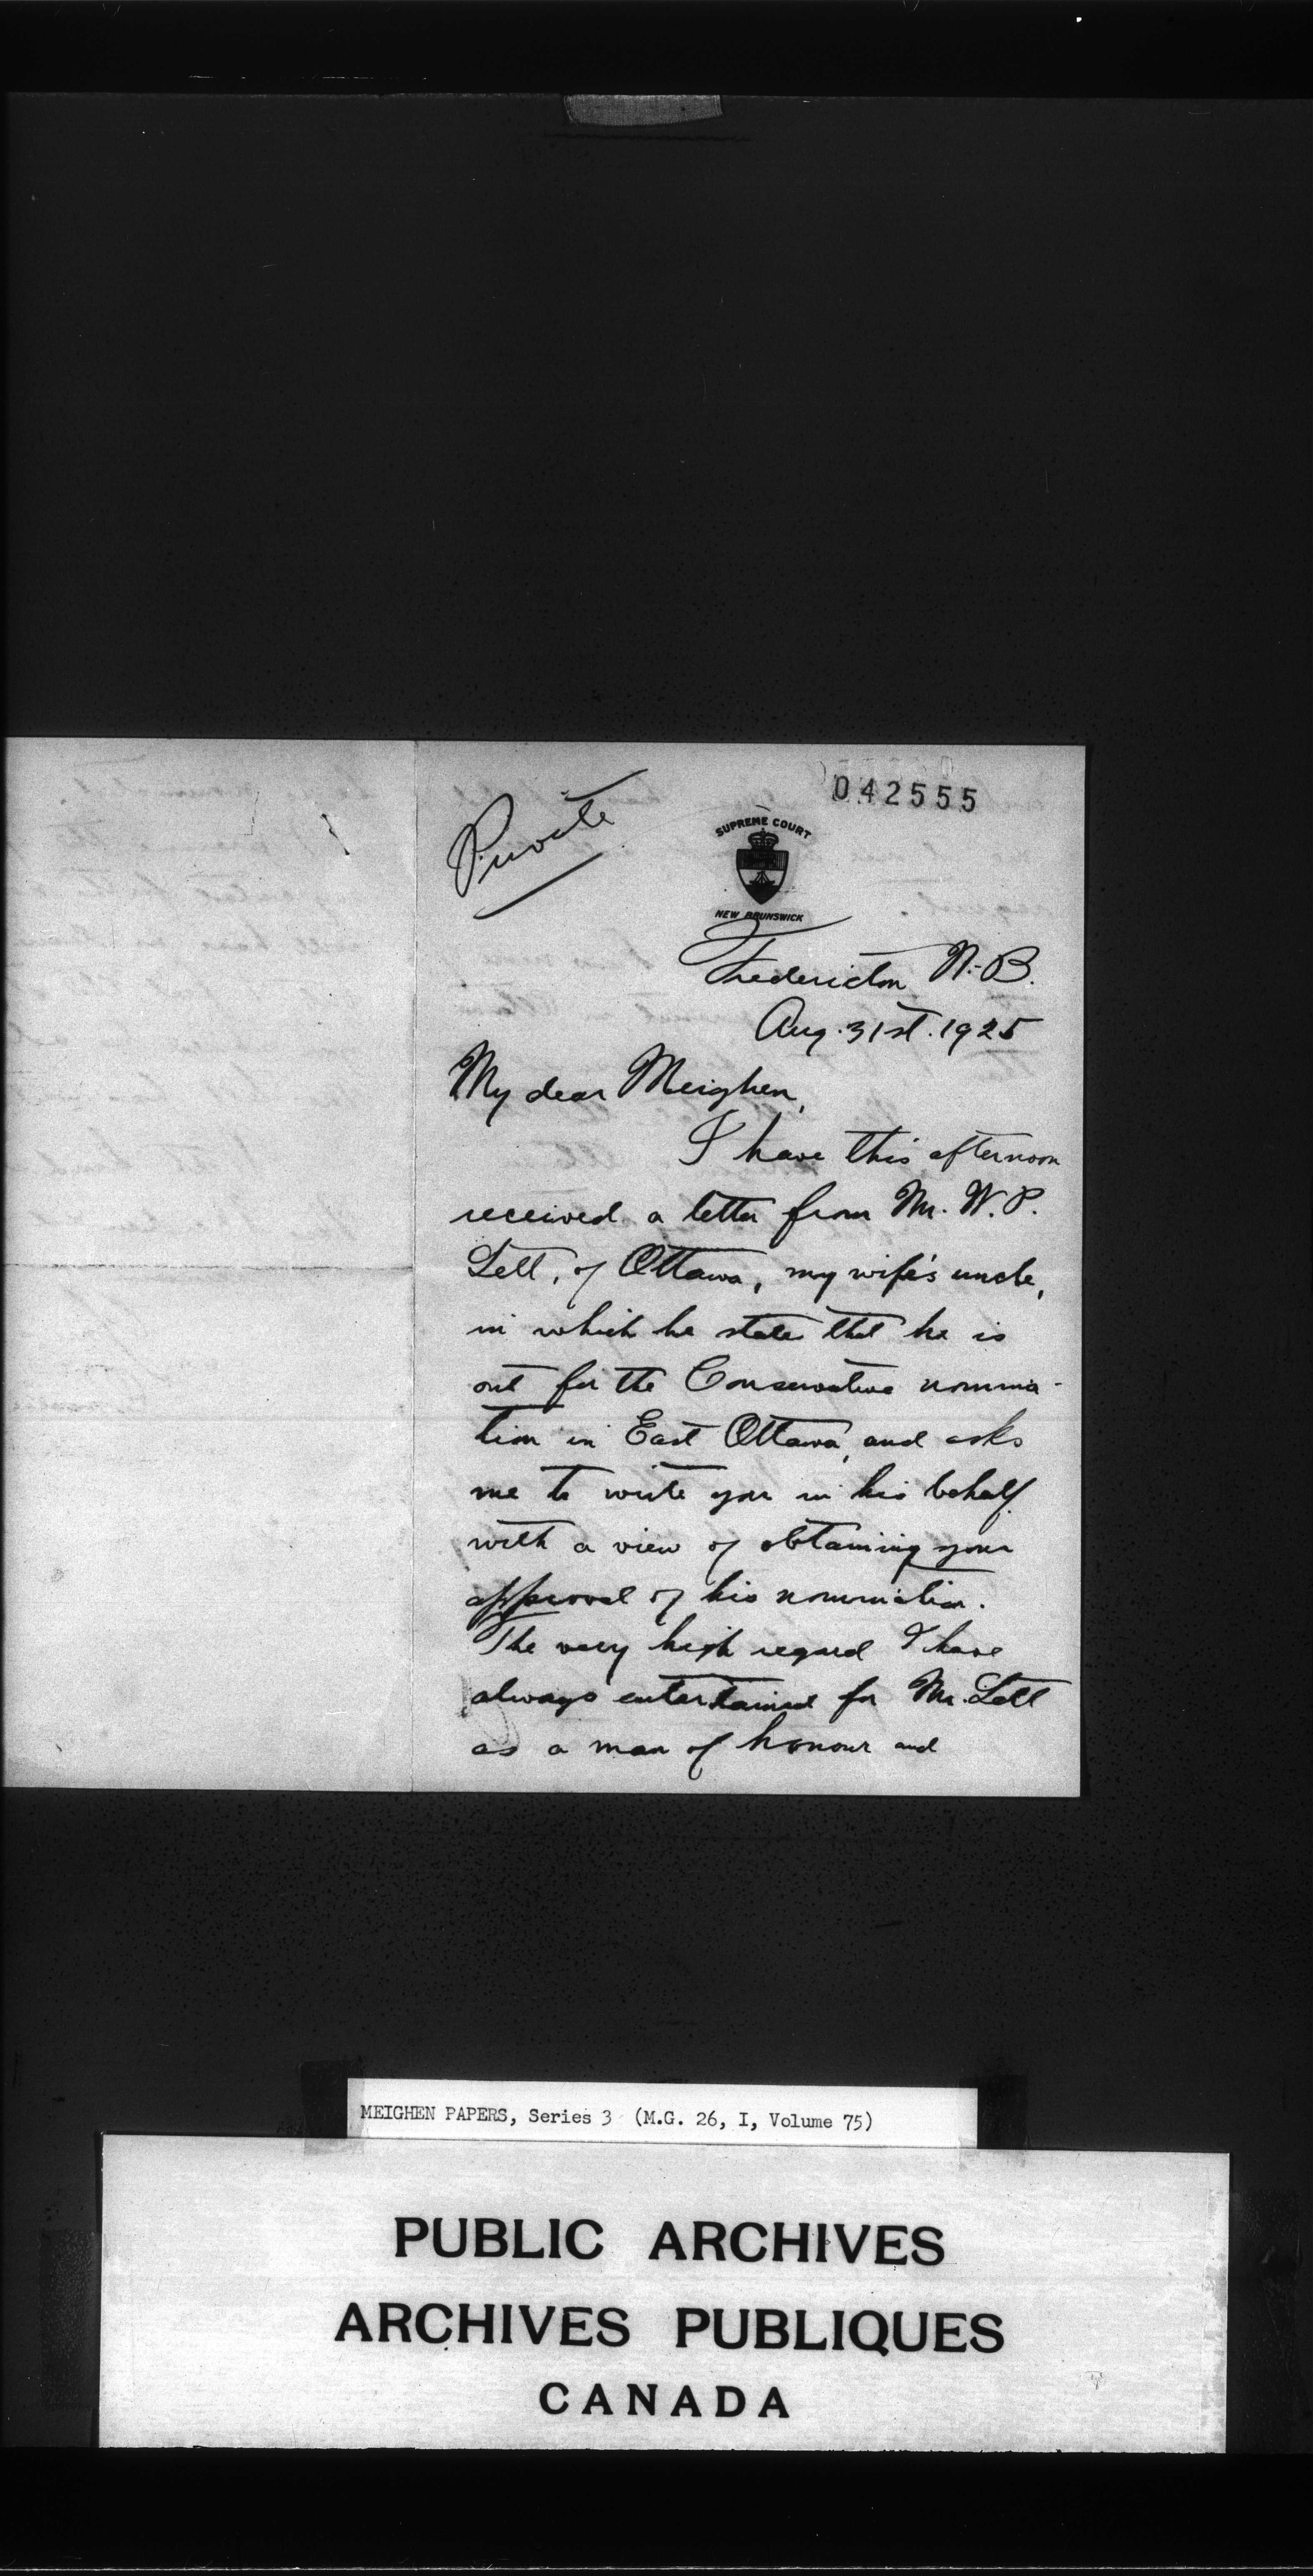 Private
042555
SUPREME COURT
NEW BRUNSWICK
Fredericton N.B.
Aug. 31st. 1925
My dear Meighen,
I have this afternoon
received a letter from Mr. W. P.
Lett, of Ottawa, my wife's uncle,
in which he states that he is
out for the Conservative nomina-
tion in East Ottawa, and asks
me to write you in his behalf
with a view of obtaining your
approval of his nomination.
The very high regard I have
always entertained for Mr. Lett
as a man of honour and
MEIGHEN PAPERS, Series 3 (M.G. 26, I, Volume 75)
PUBLIC ARCHIVES
ARCHIVES PUBLIQUES
CANADA